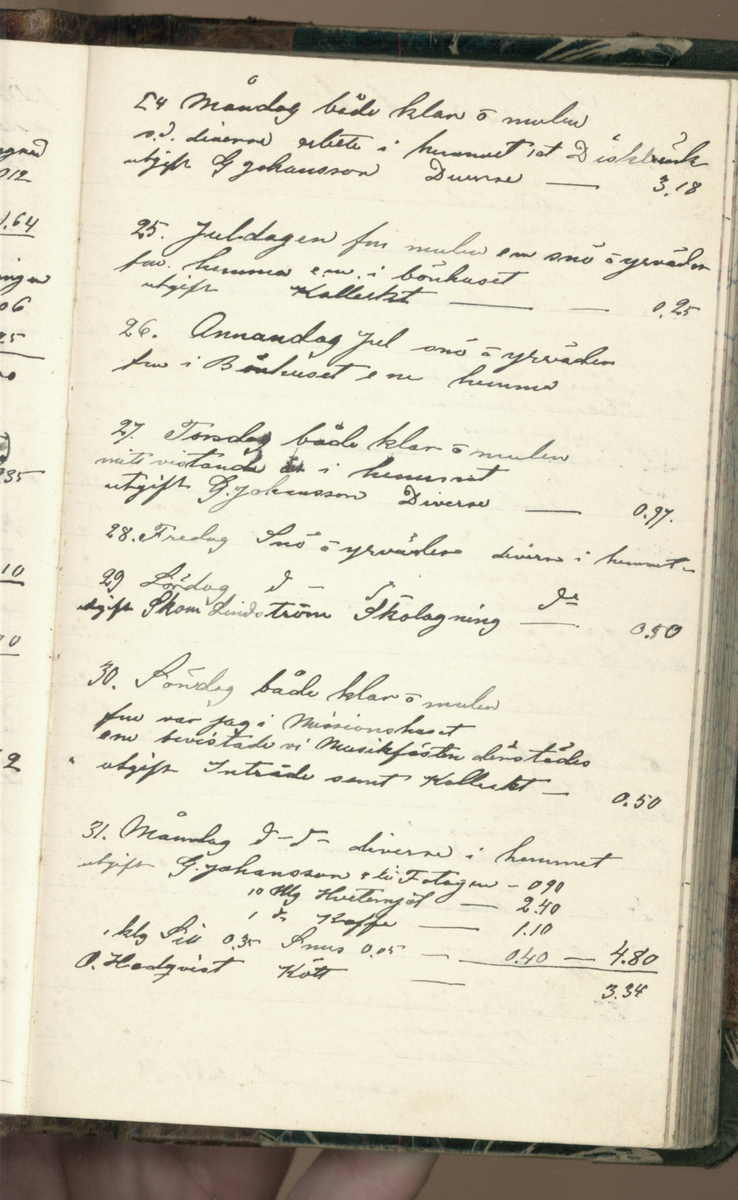 gned
012
1.64
ingen
06
25
935
10
2
24 Måndag både klar o mulen
s.d. diverse arbete i hemmet
utgift G Johansson Diverse — 3.18
25. Juldagen fm mulen em snö o yrväder
fm. hemma em. i bönhuset
utgift Kollekt — — 0.25
26. Annandag Jul snö o yrväder
fm i Bönhuset em hemma
27. Torsdag både klar o mulen
i hemmet
utgift G. Johansson Diverse — 0.97.
28. Fredag Snö o yrväder diverse i hemmet
29 Lördag d — d
utgift Skom Lindström Skolagning — 0.50
30. Söndag både klar o mulen
fm var jag i Missionshuset
em bevistade vi Musikfästen därstädes
utgift Inträde samt Kollekt — 0.50
31. Måndag d-d- diverse i hemmet
utgift G. Johansson Fotogen - 0 90
10 klg Hvetemjöl — 2.40
1 d Kaffe — 1.10
1 klg Sill 0.35 Snus 0.05 — 0.40 — 4.80
O. Hedqvist Kött — 3.34